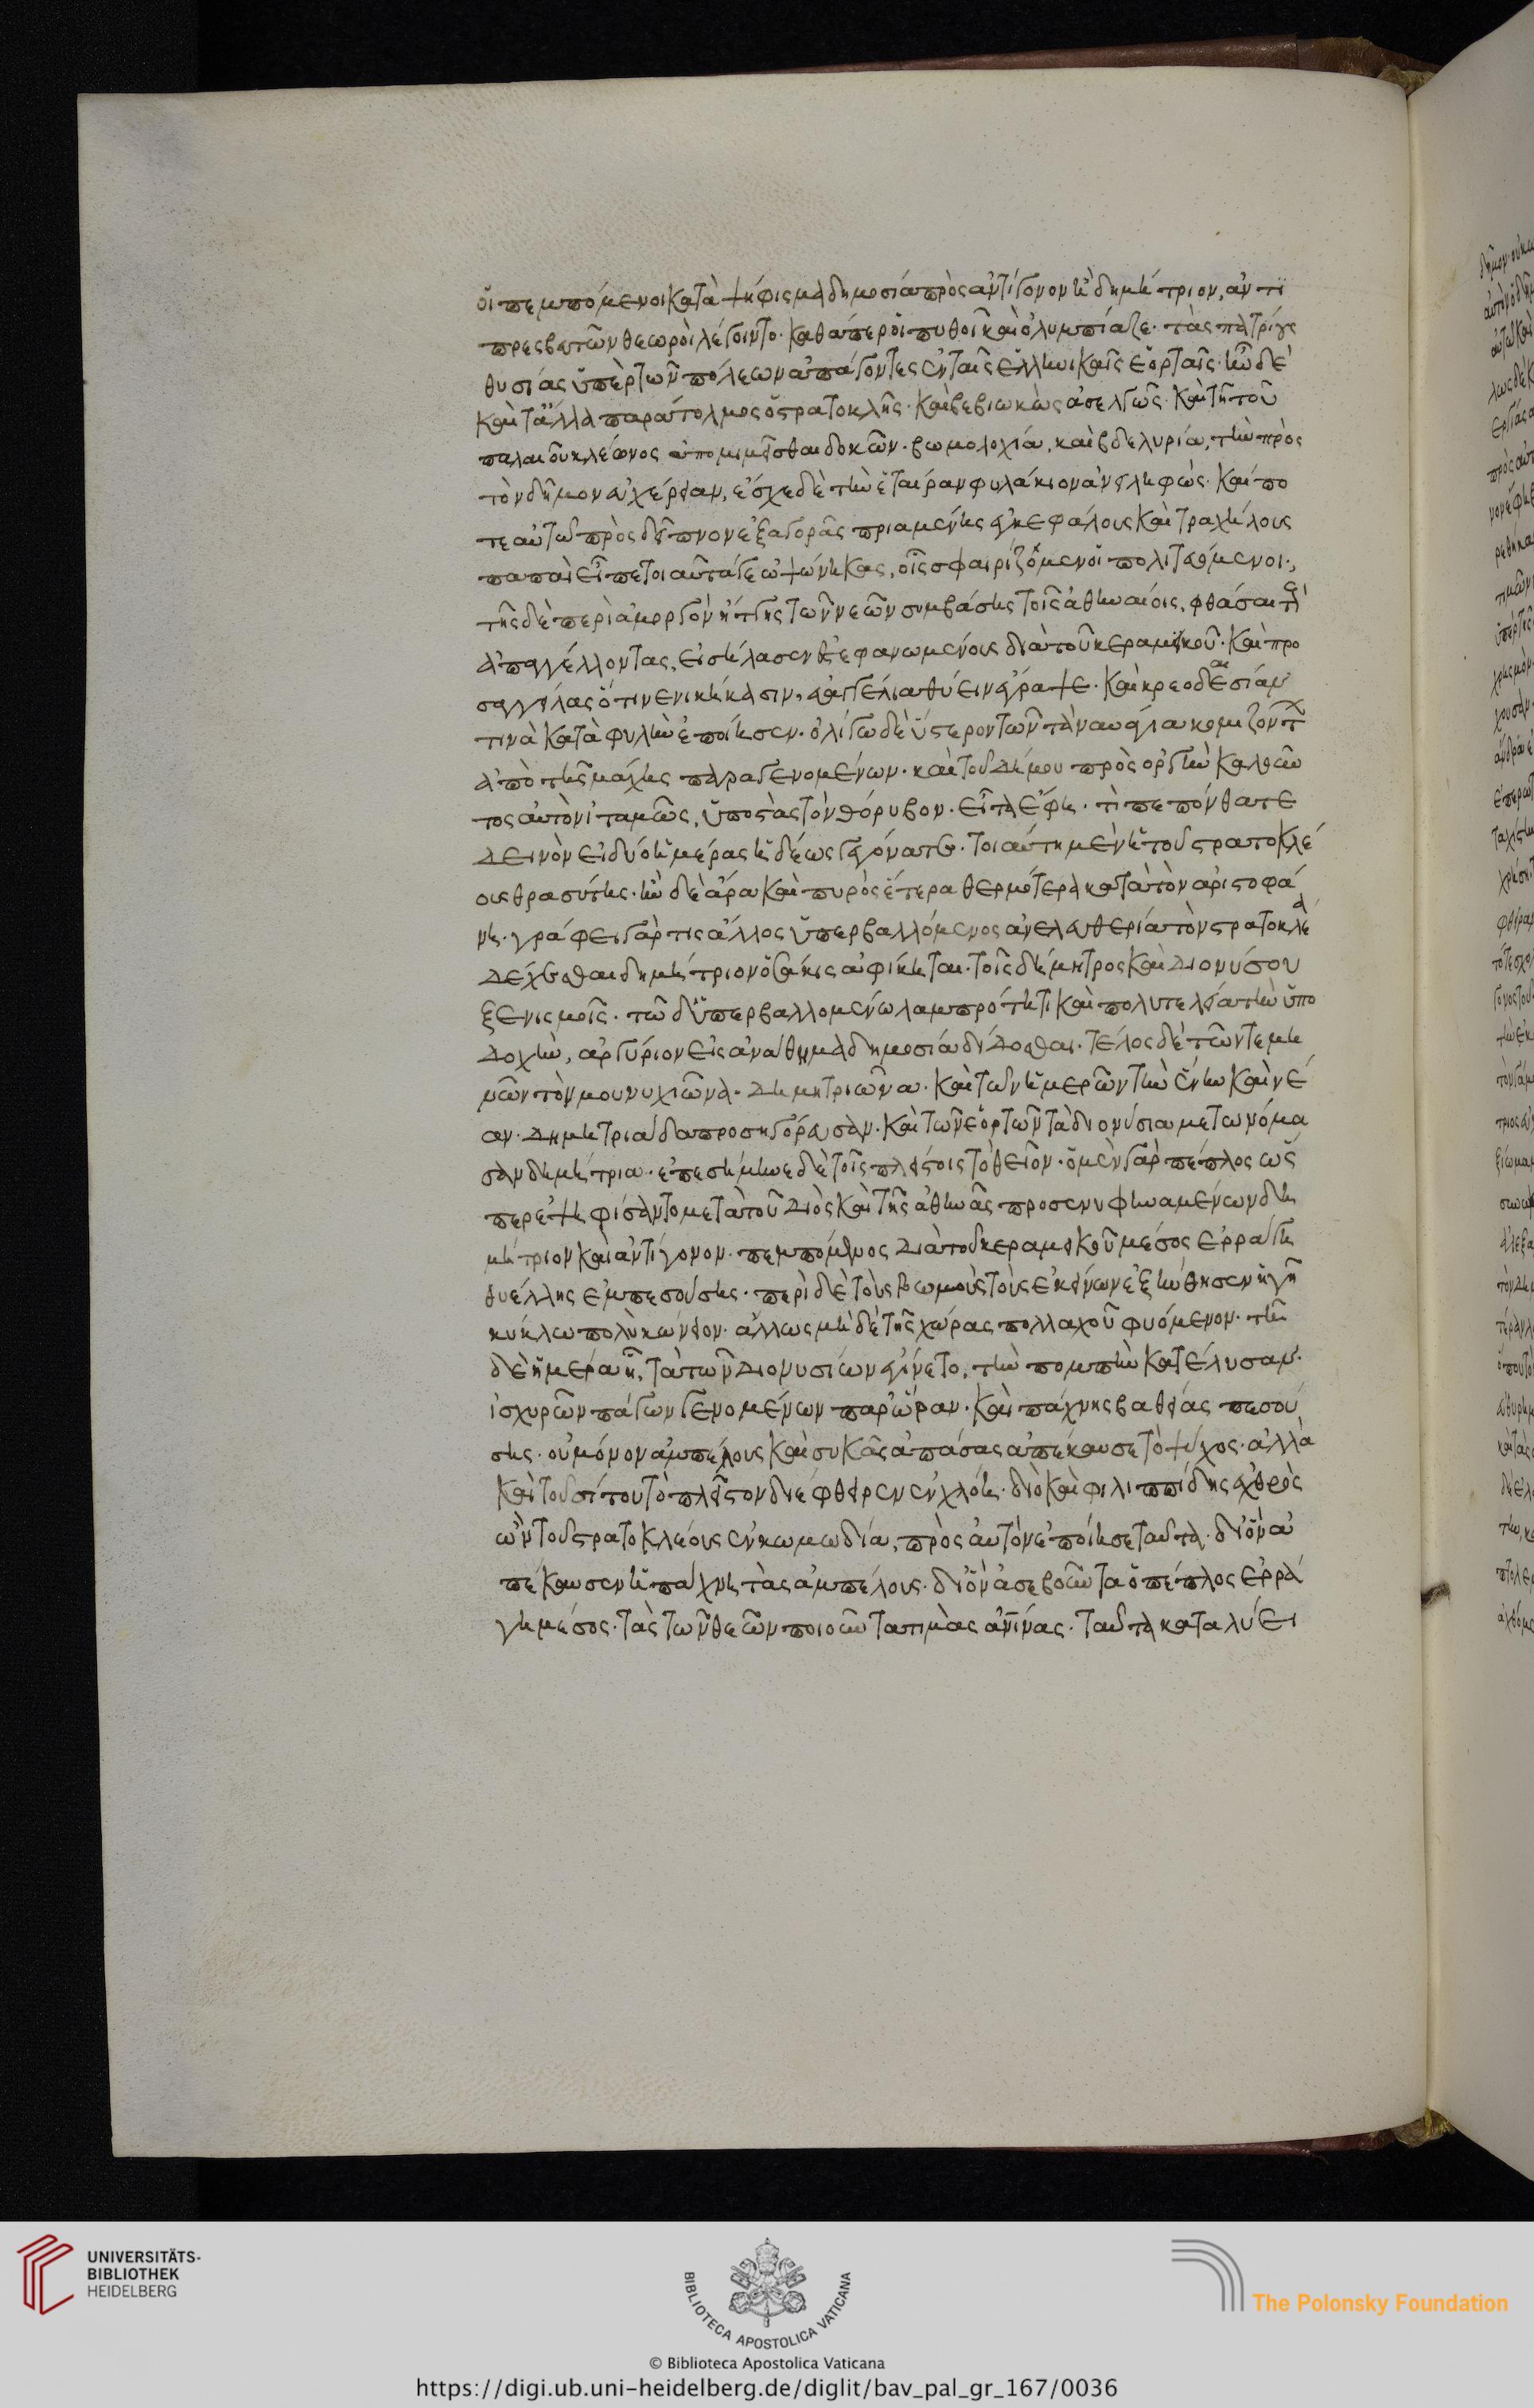 οἱ πεμπόμενοι κατὰ ψήφισμα δημοσία πρὸς ἀντίγονον ἢ δημήτριον, ἀντὶ
πρεσβευτῶν θεωροὶ λέγοιντο· καθάπερ οἱ πυθοῖ καὶ ὀλυμπίαζε· τὰς πατρίους
θυσίας ὑπὲρ τῶν πόλεων ἀπάγοντες ἐν ταῖς ἑλληνικαῖς ἑορταῖς· ἦν δὲ
καὶ τἄλλα παράτολμος ὁ στρατοκλῆς· καὶ βεβιωκὼς ἀσελγῶς· καὶ τῆ τοῦ
παλαιοῦ κλέωνος ἀπομιμεῖσθαι δοκῶν· βωμολοχία, καὶ βδελυρία, τὴν πρὸς
τὸν δῆμον εὐχέρειαν, ἔσχε δὲ τὴν ἑταίραν φυλάκιον ἀνειληφώς· καί πο
τε αὐτῶ πρὸς δεῖπνον ἐξ ἀγορᾶς πριαμένης ἐγκεφάλους καὶ τραχήλους
παπαὶ εἶπε τοιαῦτά γε ὠψώνηκας, οἷς σφαιρίζομεν οἱ πολιτευόμενοι·,
τῆς δὲ περὶ ἀμοργὸν ἥττης τῶν νεῶν συμβάσης τοῖς ἀθηναίοις, φθάσας τοὺς
ἀπαγγέλλοντας, εἰσήλασεν ἐστεφανωμένος διὰ τοῦ κεραμεικοῦ· καὶ προ
σαγγείλας ὅτι νενικήκασιν, εὐαγγέλια θύειν ἔγραψε· καὶ κρεοδαισίαν
τινὰ κατὰ φυλὴν ἐποίησεν· ὀλίγω δὲ ὕστερον τῶν τὰ ναυάγια κομιζόντων
ἀπὸ τῆς μάχης παραγενομένων· καὶ τοῦ δήμου πρὸς ὀργὴν καλοῦν
τος αὐτὸν ἰταμῶς, ὑποστὰς τὸν θόρυβον· εἶτα ἔφη· τί πεπόνθατε
δεινὸν εἰ δύο ἡμέρας ἡδέως γεγόνατε· τοιαύτη μὲν ἡ τοῦ στρατοκλέ
ους θρασύτης· ἦν δὲ ἄρα καὶ πυρὸς ἕτερα θερμότερα κατὰ τὸν ἀριστοφά
νη· γράφει γάρ τις ἄλλος ὑπερβαλλόμενος ἀνελευθερία τὸν στρατοκλέα
δέχεσθαι δημήτριον ὁσάκις ἀφίκηται· τοῖς δήμητρος καὶ διονύσου
ξενισμοῖς· τῶ δ' ὑπερβαλλομένω λαμπρότητι καὶ πολυτελεία τὴν ὑπο
δοχὴν, ἀργύριον εἰς ἀνάθημα δημοσία δίδοσθαι· τέλος δὲ τῶν τε μη
νῶν τὸν μουνυχιῶνα· δημητριῶνα· καὶ τῶν ἡμερῶν τὴν ἕνην καὶ νέ
αν· δημητριάδα προσηγόρευσαν· καὶ τῶν ἑορτῶν τὰ διονύσια μετωνόμα
σαν δημήτρια· ἐπεσήμηνε δὲ τοῖς πλείστοις τὸ θεῖον· ὁ μὲν γὰρ πέπλος ὥς
περ ἐψηφίσαντο μετὰ τοῦ διὸς καὶ τῆς ἀθηνᾶς προσενυφηναμένων δη
μήτριον καὶ ἀντίγονον· πεμπόμενος διὰ τοῦ κεραμεικοῦ μέσος ἐρράγη
θυέλλης ἐμπεσούσης· περὶ δὲ τοὺς βωμοὺς τοὺς ἐκείνων ἐξήνθησεν ἡ γῆ
κύκλω πολὺ κώνειον· ἄλλως μηδὲ τῆς χώρας πολλαχοῦ φυόμενον· τῆ
δὲ ἡμέρα ἧ, τὰ τῶν διονυσίων ἐγίνετο, τὴν πομπὴν κατέλυσαν·
ἰσχυρῶν πάγων γενομένων παρ' ὥραν· καὶ πάχνης βαθείας πεσού
σης· οὐ μόνον ἀμπέλους καὶ συκᾶς ἁπάσας ἀπέκαυσε τὸ ψύχος· ἀλλὰ
καὶ τοῦ σίτου τὸ πλεῖστον διέφθειρεν ἐν χλόη· διὸ καὶ φιλιππίδης ἐχθρὸς
ὢν τοῦ στρατοκλέους ἐν κωμωδία, πρὸς αὐτὸν ἐποίησε ταῦτα· δι' ὃν ἀ
πέκαυσεν ἡ πάχνη τὰς ἀμπέλους· δι' ὃν ἀσεβοῦντα ὁ πέπλος ἐρρά
γη μέσος· τὰς τῶν θεῶν ποιοῦντα τιμὰς ἀνίνας· ταῦτα καταλύει
UNIVERSITÄTS-
BIBLIOTHEK
HEIDELBERG
BIBLIOTECA APOSTOLICA VATICANA
The Polonsky Foundation
© Biblioteca Apostolica Vaticana
https://digi.ub.uni-heidelberg.de/diglit/bav_pal_gr_167/0036